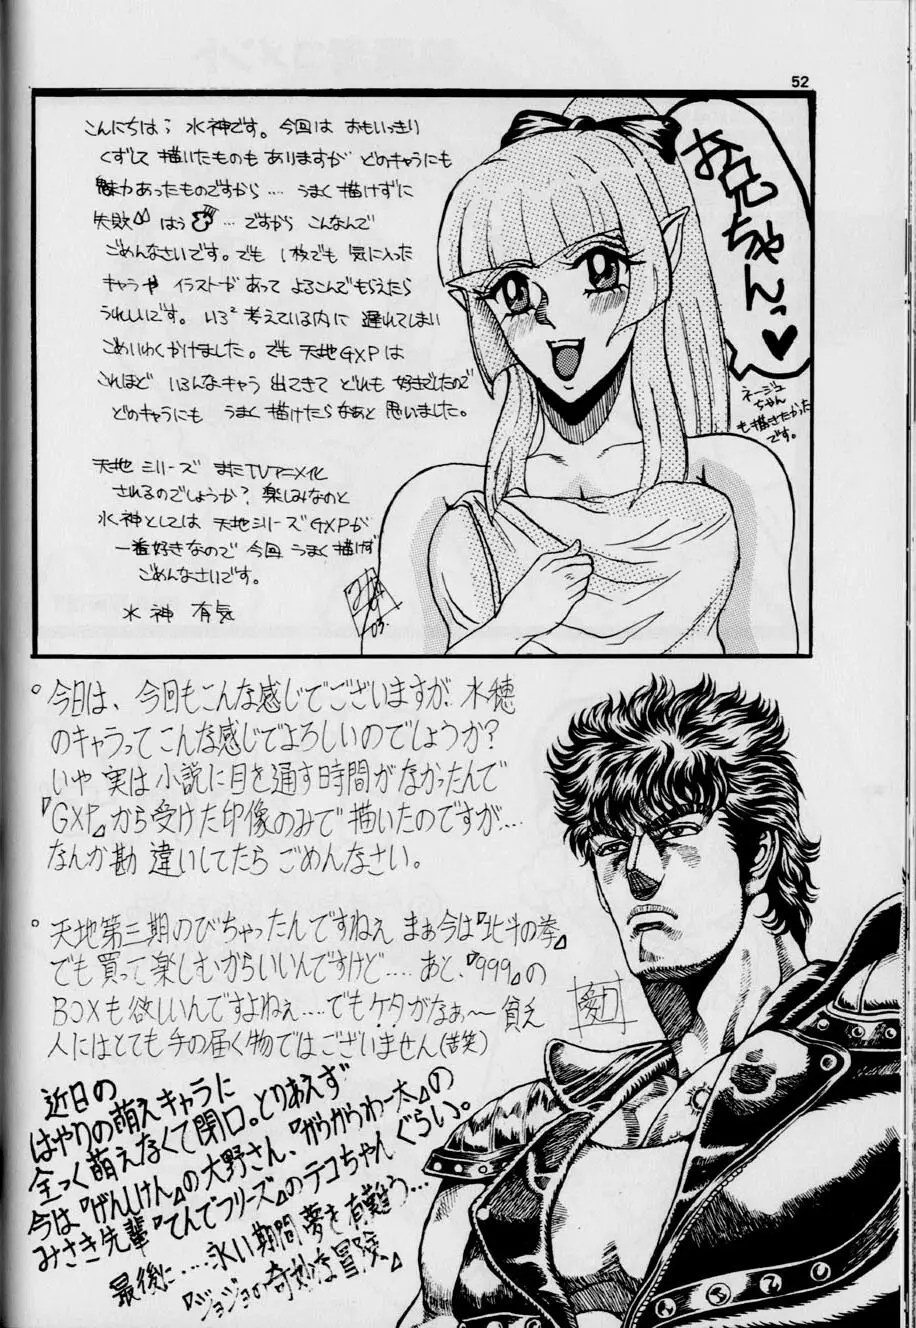 52
こんにちは、水神です。今回は おもいっきり
くずして 描いたものも ありますが どのキャラにも
魅力あったものですから‥‥ うまく描けずに
失敗 はう ‥‥ですから こんなんで
ごめんなさいです。でも 1枚でも 気に入った
キャラや イラストが あって よろこんでもらえたら
うれしいです。いろ² 考えている内に 遅れてしまい
ごめいわくかけました。でも 天地GXPは
これほど いろんなキャラ 出てきて どれも 好きでしたので
どのキャラにも うまく 描けたらなあと 思いました。
天地シリーズ またTVアニメ化
されるのでしょうか? 楽しみなのと
水神としては 天地シリーズGXPが
一番好きなので 今回 うまく描けず
ごめんなさいです。
水神 有気
お兄ちゃんっ♥
ネージュ
ちゃん
も描きたかった
です。
。今日は、今回もこんな感じでございますが、水穂
のキャラってこんな感じでよろしいのでしょうか?
いや 実は小説に目を通す時間がなかったんで
『GXP』から受けた印像のみで描いたのですが‥‥
なんか勘違いしてたら ごめんなさい。
。天地第三期のびちゃったんですねえ まぁ今は『北斗の拳』
でも買って楽しむからいいんですけど‥‥ あと、『999』の
BOXも欲しいんですよねぇ‥‥でもケタがなぁ〜 貧乏
人にはとても手の届く物ではございません(苦笑)
近日の
はやりの萌えキャラに
全っく萌えなくて閉口。とりあえず
今は『げんしけん』の大野さん、『がうがうわー太』の
みさき先輩『てんでフリーズ』のテコちゃんぐらい。
最後に‥‥永い期間夢を有難う‥‥
『ジョジョの奇妙な冒険』